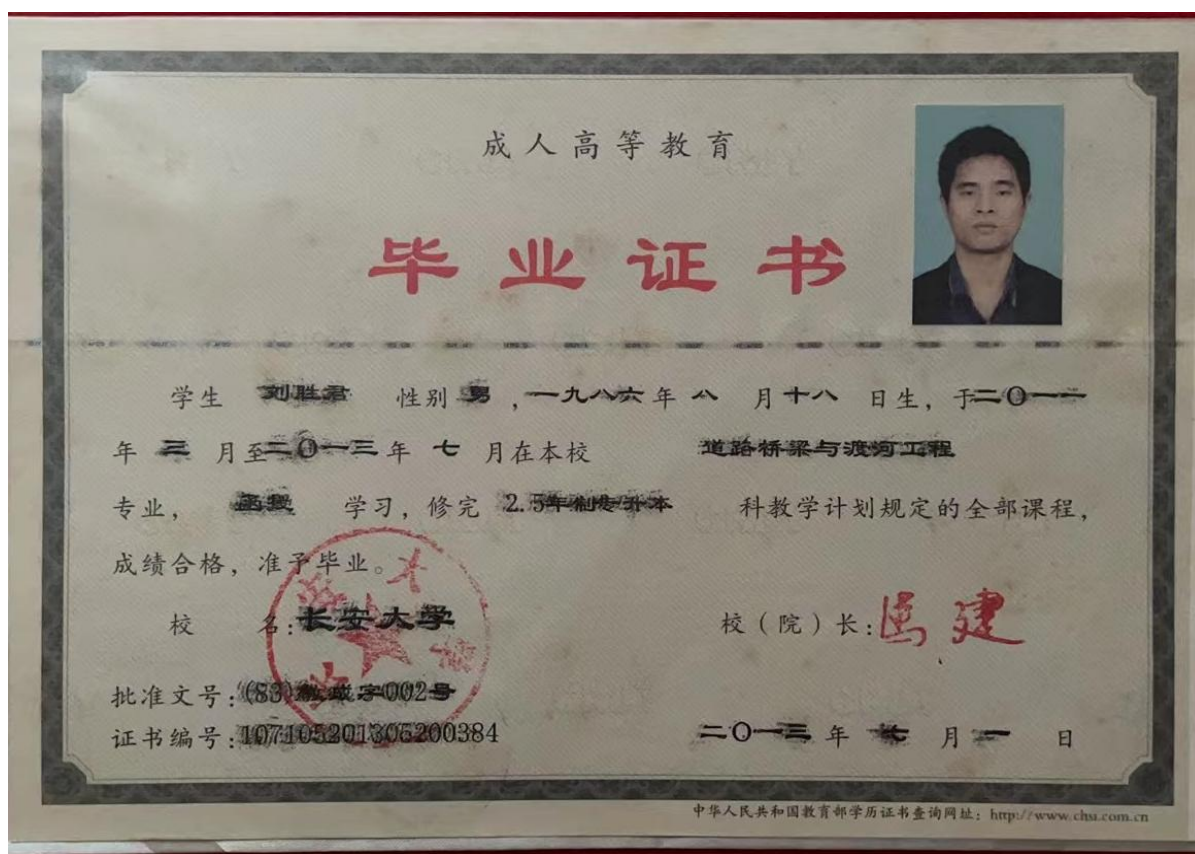 成人高等教育
毕业证书
学生 刘胜君 性别 男 ，一九八六年 八 月十八 日生，于二〇一一
年 三 月至二〇一三年 七 月在本校 道路桥梁与渡河工程
专业， 函授 学习，修完 2.5年制专升本 科教学计划规定的全部课程，
成绩合格，准予毕业。
校 名：长安大学 校（院）长：马建
批准文号：(83)教成字002号
证书编号：107105201305200384
二〇一三 年 七 月 一 日
中华人民共和国教育部学历证书查询网址：http://www.chsi.com.cn